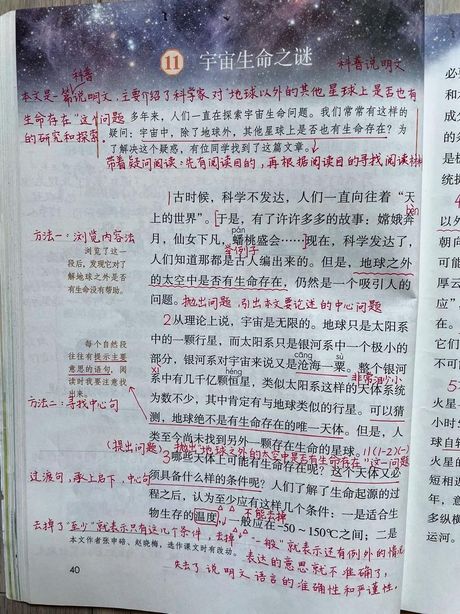 科普
11 宇宙生命之谜
科普说明文
本文是一篇说明文，主要介绍了科学家对“地球以外的其他星球上是否也有
生命存在”这一问题
的研究和探索。
多年来，人们一直在探索宇宙生命问题。我们常常有这样的
疑问：宇宙中，除了地球外，其他星球上是否也有生命存在？为
了解决这个疑惑，有位同学找到了这篇文章。
带着疑问阅读：先有阅读目的，再根据阅读目的寻找阅读材料
1古时候，科学不发达，人们一直向往着“天
上的世界”。于是，有了许许多多的故事：嫦娥奔
bèn
pán
月，仙女下凡，蟠桃盛会……现在，科学发达了，
举例子
人们知道那都是古人编出来的。但是，地球之外
的太空中是否有生命存在，仍然是一个吸引人的
问题。抛出问题，引出本文要论述的中心问题
方法一：浏览内容法
浏览了这一
段后，发现它对了
解地球之外是否
有生命没有帮助。
2从理论上说，宇宙是无限的。地球只是太阳系
中的一颗行星，而太阳系只是银河系中一个极小的
cāng sù
部分，银河系对宇宙来说又是沧海一粟。整个银河
xì héng 非常渺小
系中有几千亿颗恒星，类似太阳系这样的天体系统
为数不少，其中肯定有与地球类似的行星。可以猜
测，地球绝不是有生命存在的唯一天体。但是，人
类至今尚未找到另外一颗存在生命的星球。
每个自然段
往往有提示主要
意思的语句，阅
读时我要注意找
出来。
方法二：寻找中心句
（提出问题）抛出“地球之外的太空中是否有生命存在”这一问题
3哪些天体上可能有生命存在呢？这个天体又必
须具备什么样的条件呢？人们了解了生命起源的过
程之后，认为至少应有这样几个条件：一是适合生
物生存的温度，一般应在-50～150℃之间；二是
过渡句，承上启下，中心句
不能去掉
去掉了“至少”就表示只有这几个条件，去掉“一般”就表示还有例外的情况
表达的意思就不准确了，
失去了说明文语言的准确性和严谨性。
本文作者张申碚、赵晓梅，选作课文时有改动。
40